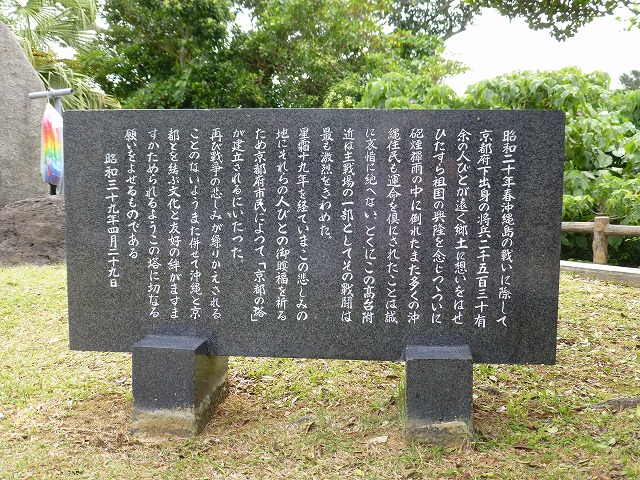 昭和二十年春沖縄島の戦いに際して
京都府下出身の将兵二千五百三十有
余の人びとが遠く郷土に想いをはせ
ひたすら祖国の興隆を念じつつついに
砲煙彈雨の中に倒れたまた多くの沖
縄住民も運命を倶にされたことは誠
に哀惜に絶へない、とくにこの高台附
近は主戦場の一部としてその戦闘は
最も激烈をきわめた、
星霜十九年を経ていまこの悲しみの
地にそれらの人びとの御冥福を祈る
ため京都府市民によつて、「京都の塔」
が建立されるにいたつた、
再び戦争の悲しみが繰りかえされる
ことのないようまた併せて沖縄と京
都とを結ぶ文化と友好の絆がますま
すかためられるようこの塔に切なる
願いをよせるものである
昭和三十九年四月二十九日